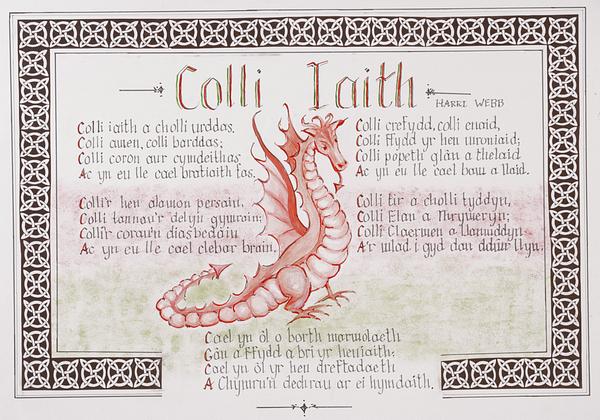 Colli Iaith
HARRI WEBB
Colli iaith a cholli urddas,
Colli awen, colli barddas;
Colli coron aur cymdeithas
Ac yn eu lle cael bratiaith fas.
Colli'r hen alawon persain,
Colli tannau'r delyn gywrain;
Colli'r corau'n diasbedain
Ac yn eu lle cael clebar brain.
Colli crefydd, colli enaid,
Colli ffydd yr hen wroniaid;
Colli popeth glân a thelaid
Ac yn eu lle cael baw a llaid.
Colli tir a cholli tyddyn,
Colli Elan a Thryweryn;
Colli Claerwen a Llanwddyn
A'r wlad i gyd dan ddŵr llyn.
Cael yn ôl o borth marwolaeth
Gân a ffydd a bri yr heniaith;
Cael yn ôl yr hen dreftadaeth
A Chymru'n dechrau ar ei hymdaith.